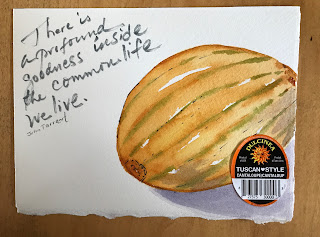 There is
a profound
goodness inside
the common life
we live.
DULCINEA
TUSCAN STYLE
CANTALOUPE/CANTALOUP